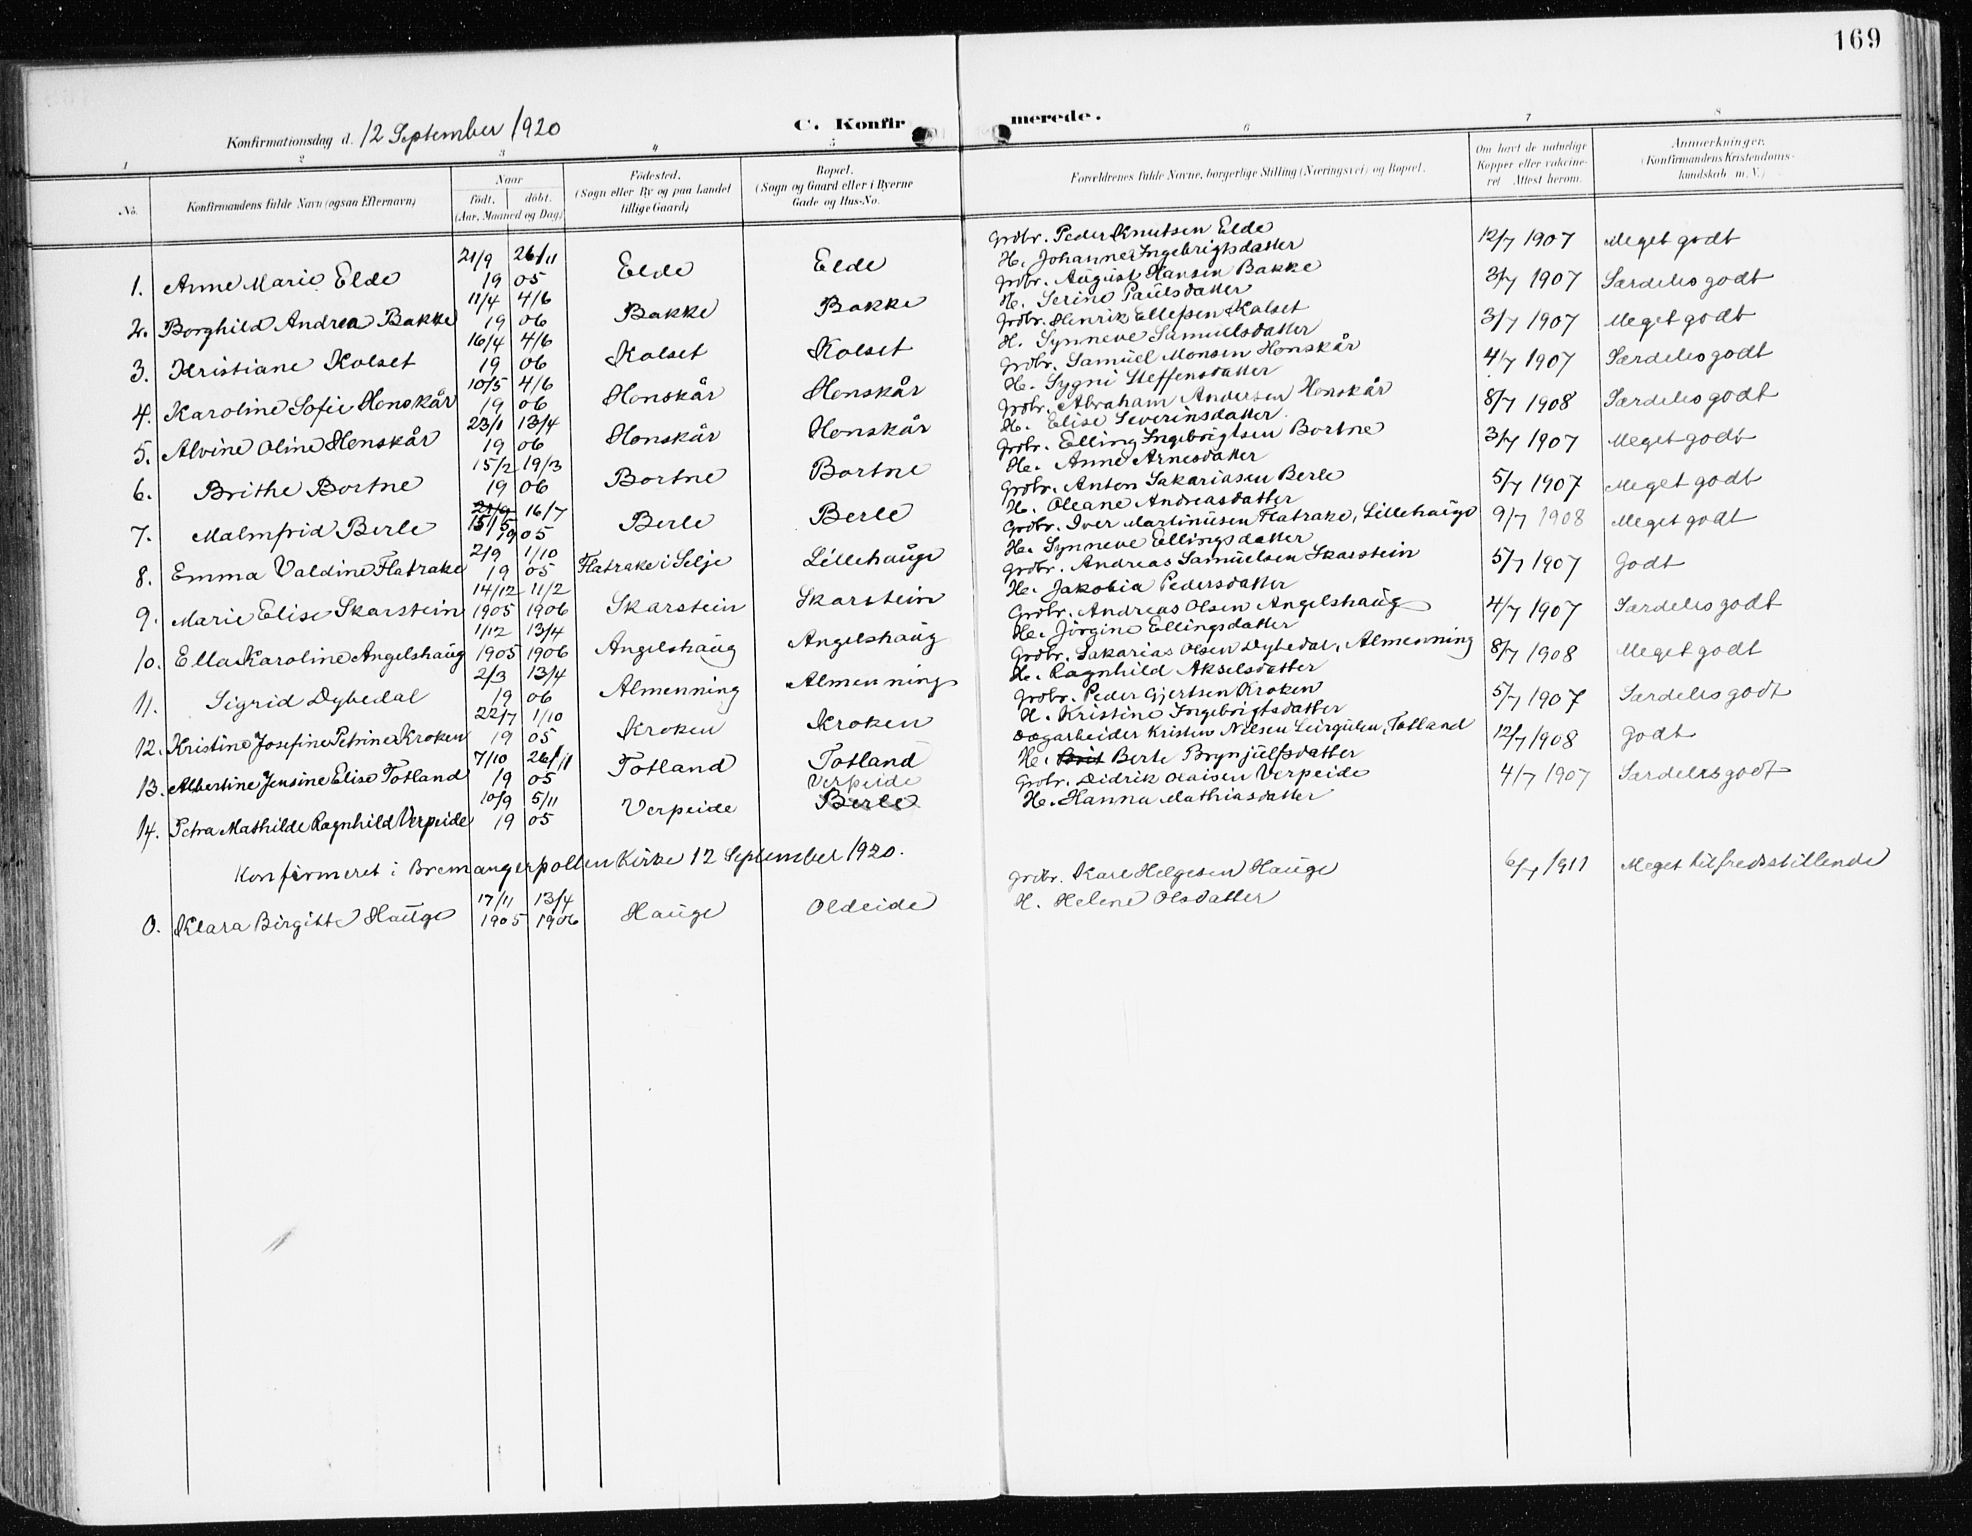 169
Konfirmationsdag d. 12 September 1920
C. Konfirmerede.
1 2 3 4 5 6 7 8
No. Konfirmandens fulde Navn (ogsaa Efternavn) Naar født, døbt. (Aar, Maaned og Dag) Fødested. (Sogn eller By og paa Landet tillige Gaard) Bopæl. (Sogn og Gaard eller i Byerne Gade og Hus-No. Forældrenes fulde Navne, borgerlige Stilling (Næringsvei) og Bopæl. Om havt de naturlige Kopper eller vakcineret. Attest herom. Anmærkninger. (Konfirmandens Kristendomskundskab m. V.)
1. Anne Marie Elde 21/9 26/11 19 05 Elde Elde Grdbr. Peder Knutsen Elde H. Johanne Ingebrigtsdatter 12/7 1907 Meget godt
2. Borghild Andrea Bakke 11/4 4/6 19 06 Bakke Bakke Grdbr. August Hansen Bakke H. Serine Paulsdatter 3/7 1907 Særdeles godt
3. Kristiane Kolset 16/4 4/6 19 06 Kolset Kolset Grdbr. Henrik Ellefsen Kolset H. Synneve Samuelsdatter 3/7 1907 Meget godt
4. Karoline Sofie Honskår 10/5 4/6 19 06 Honskår Honskår Grdbr. Samuel Monsen Honskår H. Sygni Steffensdatter 4/7 1907 Særdeles godt
5. Alvine Oline Honskår 23/1 13/4 19 06 Honskår Honskår Grdbr. Abraham Andersen Honskår H. Elise Severinsdatter 8/7 1908 Særdeles godt
6. Brithe Bortne 15/2 19/3 19 06 Bortne Bortne Grdbr. Elling Ingebrigtsen Bortne H. Anne Arnesdatter 3/7 1907 Meget godt
7. Malmfrid Berle 15/5 16/7 1905 Berle Berle Grdbr. Anton Sakariasen Berle H. Oleane Andreasdatter 5/7 1907 Meget godt
8. Emma Valdine Flatrake 2/9 1/10 19 05 Flatrake i Selje Lillehauge Grdbr. Iver Martinusen Flatrake, Lillehauge H. Synneve Ellingsdatter 9/7 1908 Meget godt
9. Marie Elise Skarstein 14/12 11/2 1905 1906 Skarstein Skarstein Grdbr. Andreas Samuelsen Skarstein H. Jakobia Pedersdatter 5/7 1907 Godt
10. Ella Karoline Angelshaug 1/12 13/4 1905 1906 Angelshaug Angelshaug Grdbr. Andreas Olsen Angelshaug H. Jörgine Ellingsdatter 4/7 1907 Særdeles godt
11. Sigrid Dybedal 2/3 13/4 19 06 Almenning Almenning Grdbr. Sakarias Olsen Dybedal, Almenning H. Ragnhild Akselsdatter 8/7 1908 Meget godt
12. Kristine Josefine Petrine Kroken 22/7 1/10 19 05 Kroken Kroken Grdbr. Peder Gjertsen Kroken H. Kristine Ingebrigtsdatter 5/7 1907 Særdeles godt
13. Albertine Jensine Elise Totland 7/10 26/11 19 05 Totland Totland Dagarbeider Kristen Nilsen Leirgulen, Totland H. Brit Berte Brynjulfsdatter 12/7 1908 Godt
14. Petra Mathilde Ragnhild Verpeide 10/9 5/11 19 05 Verpeide Verpeide Berle Grdbr. Didrik Olaisen Verpeide H. Hanna Mathiasdatter 4/7 1907 Særdeles godt
Konfirmeret i Bremangerpollen Kirke 12 September 1920.
0. Klara Birgitte Hauge 17/11 13/4 1905 1906 Hauge Oldeide Grdbr. Karl Helgesen Hauge H. Helene Olsdatter 6/7 1911 Meget tilfredsstillende